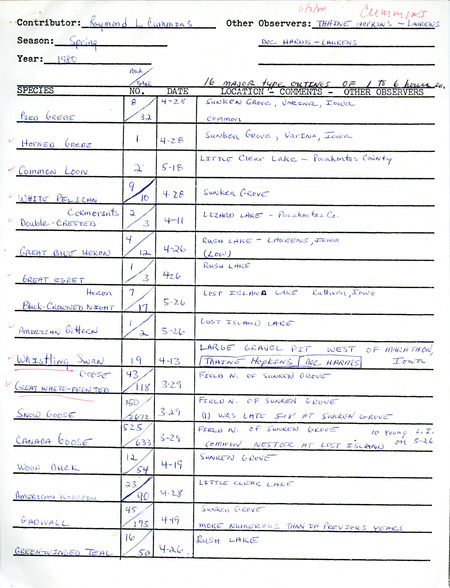 6/3/80 Cummins
Contributor: Raymond L Cummins Other Observers: THAINE HOPKINS - LAURENS
Season: Spring DOC HARMS - LAURENS
Year: 1980
16 MAJOR TYPE OUTINGS OF 1 TO 6 hours
SPECIES NO. Total DATE LOCATION - COMMENTS - OTHER OBSERVERS
PIED GREBE 8/32 4-28 SUNKEN GROVE, VARINA, IOWA
COMMON
HORNED GREBE 1 4-28 SUNKEN GROVE, VARINA, IOWA
COMMON LOON 2 5-18 LITTLE CLEAR LAKE - POCAHONTAS COUNTY
WHITE PELICAN 9/10 4-28 SUNKEN GROVE
Cormorants
Double-CRESTED 2/3 4-11 LIZARD LAKE - POCAHONTAS CO.
GREAT BLUE HERON 4/12 4-26 RUSH LAKE - LAURENS, IOWA
(LOW)
GREAT EGRET 1/3 4-26 RUSH LAKE
HERON
BLACK-CROWNED NIGHT 7/17 5-26 LOST ISLAND LAKE RUTHVEN, IOWA
AMERICAN BITTERN 1/2 5-26 LOST ISLAND LAKE
WHISTLING SWAN 19 4-13 LARGE GRAVEL PIT WEST OF MARATHON,
THAINE HOPKINS DOC HARMS IOWA
GOOSE
GREAT WHITE-FRONTED 43/118 3-29 FIELD N. OF SUNKEN GROVE
SNOW GOOSE 150 3-29 FIELD N. OF SUNKEN GROVE
(1) WAS LATE 5-18 AT SUNKEN GROVE
CANADA GOOSE 525/633 3-29 FIELD N. OF SUNKEN GROVE 10 YOUNG L.I.
COMMON NESTER AT LOST ISLAND on 5-26
WOOD DUCK 12/54 4-19 SUNKEN GROVE
AMERICAN WIDGEON 23/90 4-28 LITTLE CLEAR LAKE
GADWALL 45/175 4-19 SUNKEN GROVE
MORE NUMEROUS THAN IN PREVIOUS YEARS
GREEN-WINGED TEAL 16/50 4-26 RUSH LAKE